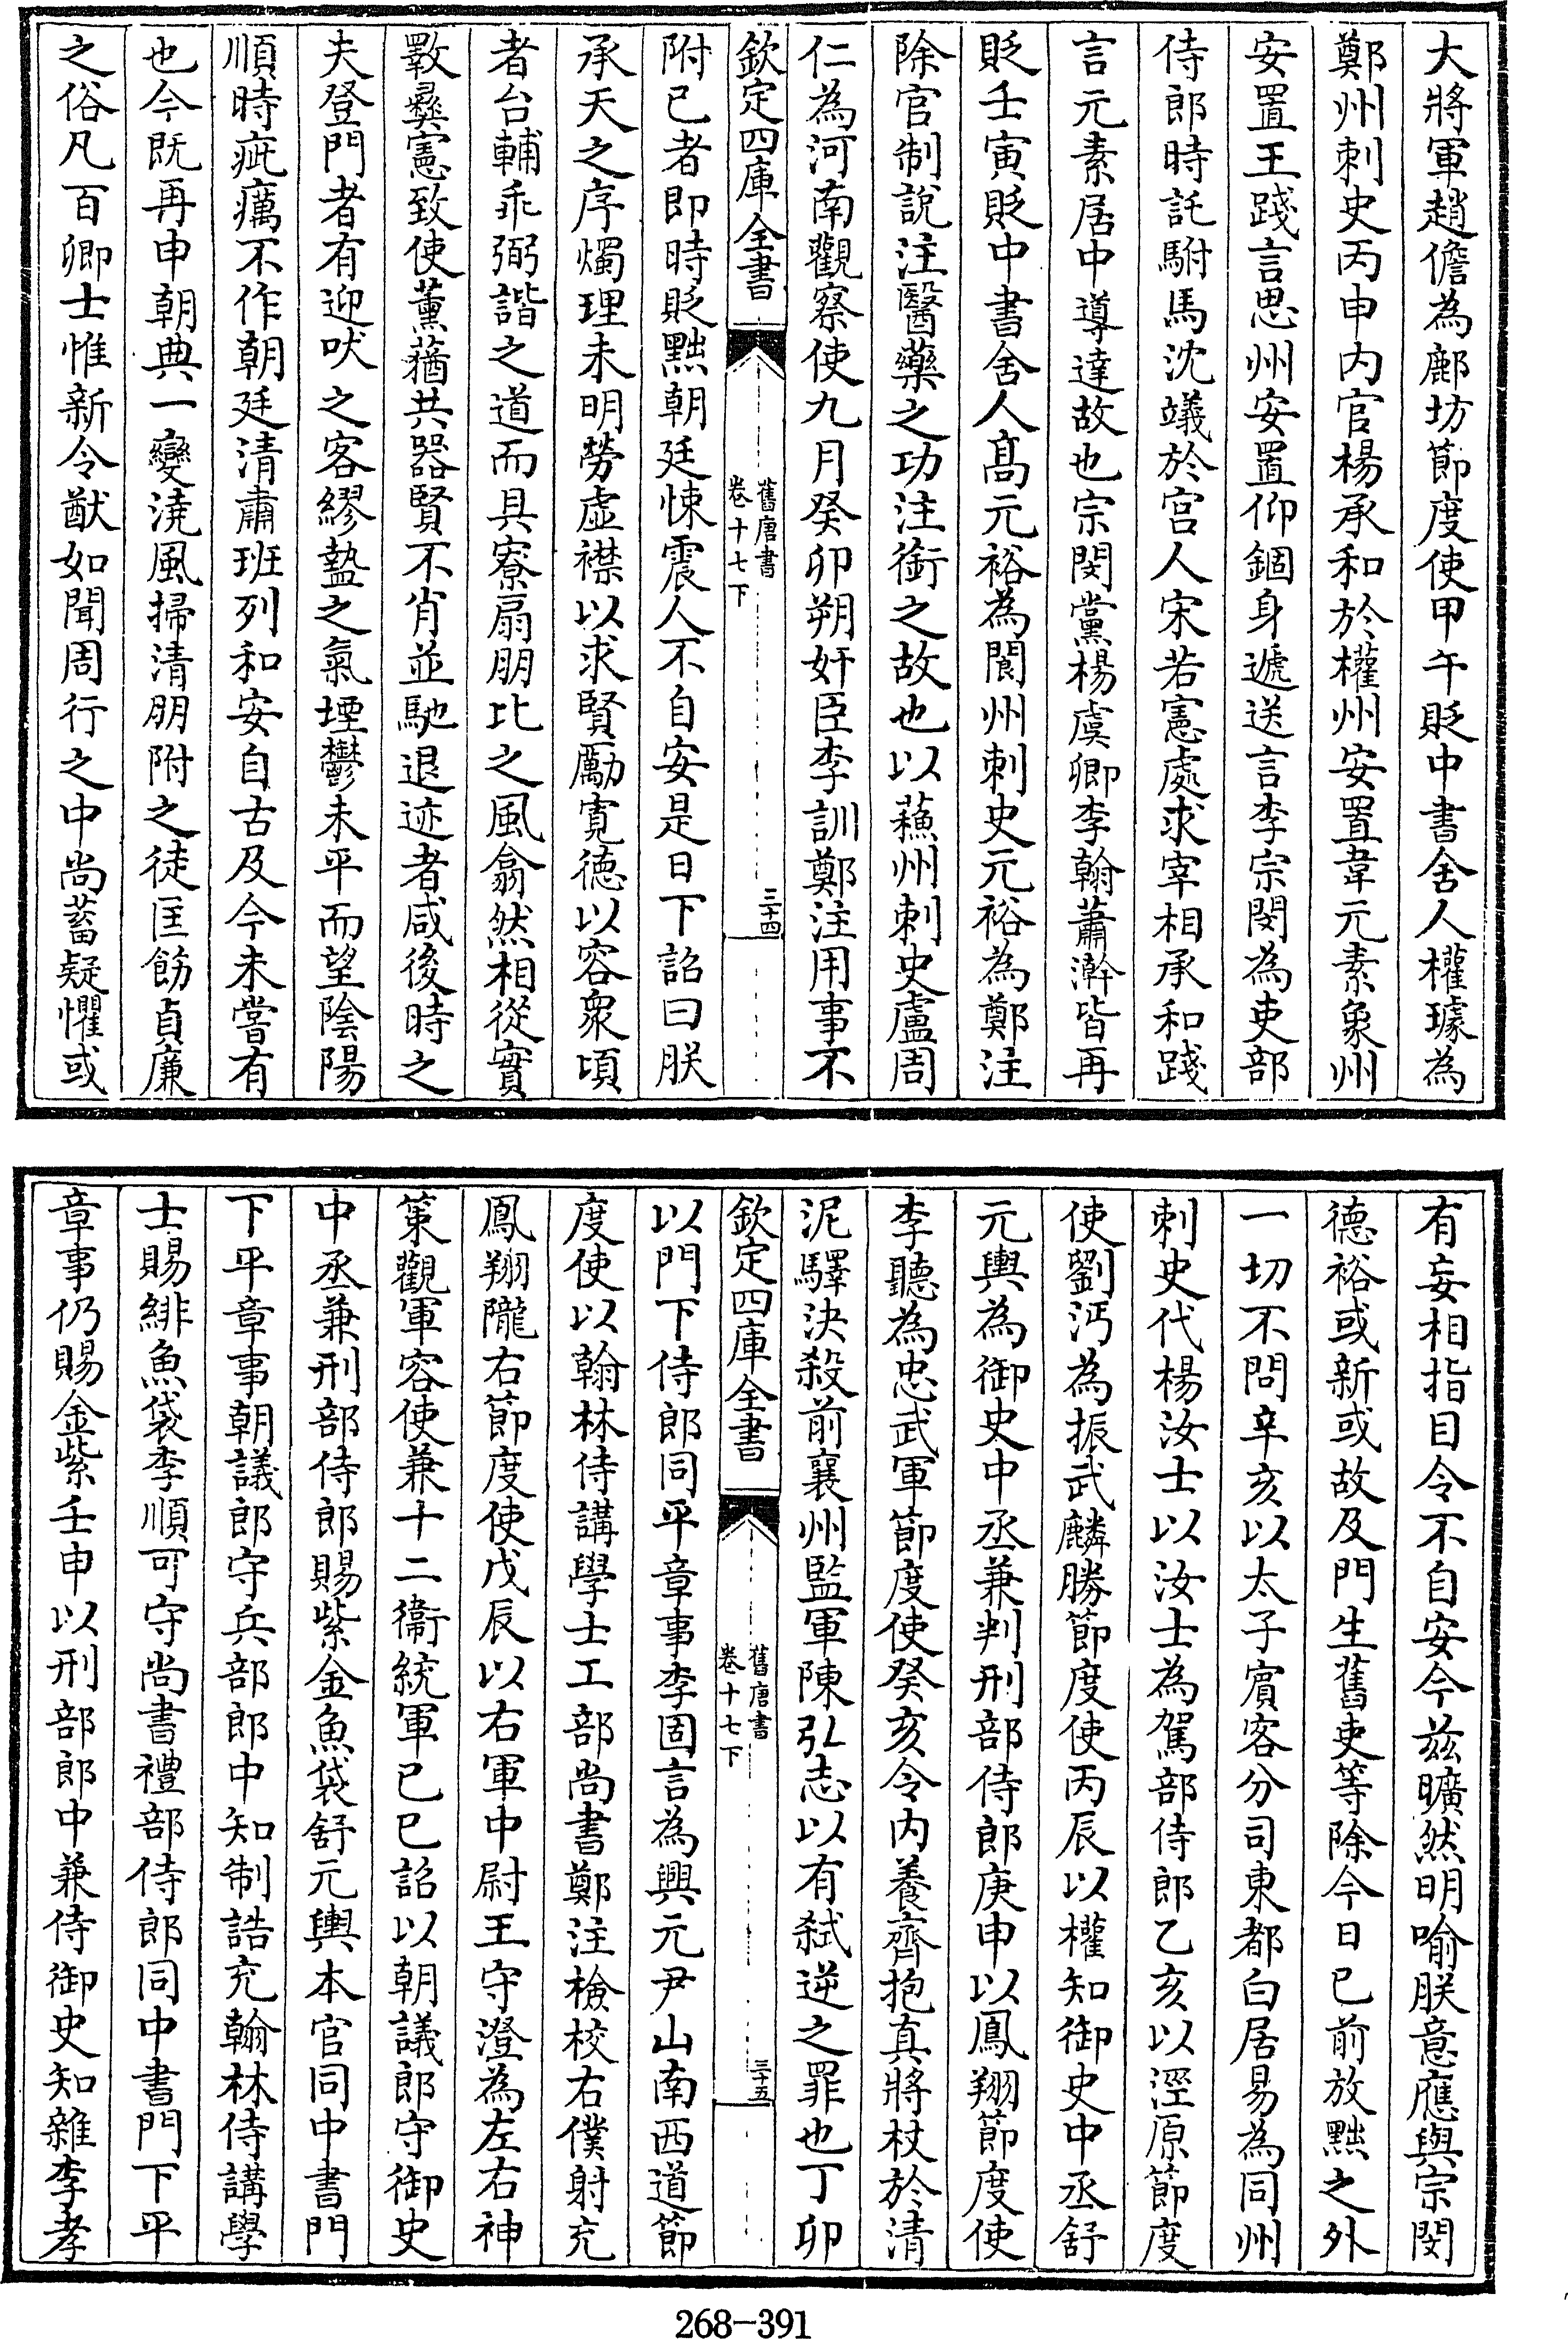 大將軍趙儋為鄜坊節度使甲午貶中書舍人權璩為
鄭州刺史丙申内官楊承和於權州安置韋元素象州
安置王踐言思州安置仰錮身遞送言李宗閔為吏部
侍郎時託駙馬沈䘙於宫人宋若憲處求宰相承和踐
言元素居中導達故也宗閔黨楊虞卿李翰蕭澣皆再
貶壬寅貶中書舍人髙元裕為閬州刺史元裕為鄭注
除官制說注醫藥之功注銜之故也以蘓州刺史盧周
仁為河南觀察使九月癸卯朔奸臣李訓鄭注用事不
欽定四庫全書
舊唐書
卷十七下
三十四
附已者即時貶黜朝廷悚震人不自安是日下詔曰朕
承天之序燭理未明勞虛襟以求賢勵寛德以容衆頃
者台輔乖弼諧之道而具寮扇朋比之風翕然相從實
斁彛憲致使薰蕕共器賢不肖並馳退迹者咸後時之
夫登門者有迎吠之客繆盭之氣堙鬱未平而望陰陽
順時疵癘不作朝廷清肅班列和安自古及今未嘗有
也今既再申朝典一變澆風掃清朋附之徒匡飭貞廉
之俗凡百卿士惟新令猷如聞周行之中尚蓄疑懼或
有妄相指目令不自安今兹曠然明喻朕意應與宗閔
德裕或新或故及門生舊吏等除今日已前放黜之外
一切不問辛亥以太子賓客分司東都白居易為同州
刺史代楊汝士以汝士為駕部侍郎乙亥以涇原節度
使劉沔為振武麟勝節度使丙辰以權知御史中丞舒
元輿為御史中丞兼判刑部侍郎庚申以鳳翔節度使
李聽為忠武軍節度使癸亥令内養齊抱真將杖於清
泥驛決殺前襄州監軍陳弘志以有弑逆之罪也丁卯
欽定四庫全書
舊唐書
卷十七下
三十五
以門下侍郎同平章事李固言為興元尹山南西道節
度使以翰林侍講學士工部尚書鄭注檢校右僕射充
鳳翔隴右節度使戊辰以右軍中尉王守澄為左右神
策觀軍容使兼十二衞統軍已巳詔以朝議郎守御史
中丞兼刑部侍郎賜紫金魚袋舒元輿本官同中書門
下平章事朝議郎守兵部郎中知制誥充翰林侍講學
士賜緋魚袋李順可守尚書禮部侍郎同中書門下平
章事仍賜金紫壬申以刑部郎中兼侍御史知雜李孝
268-391